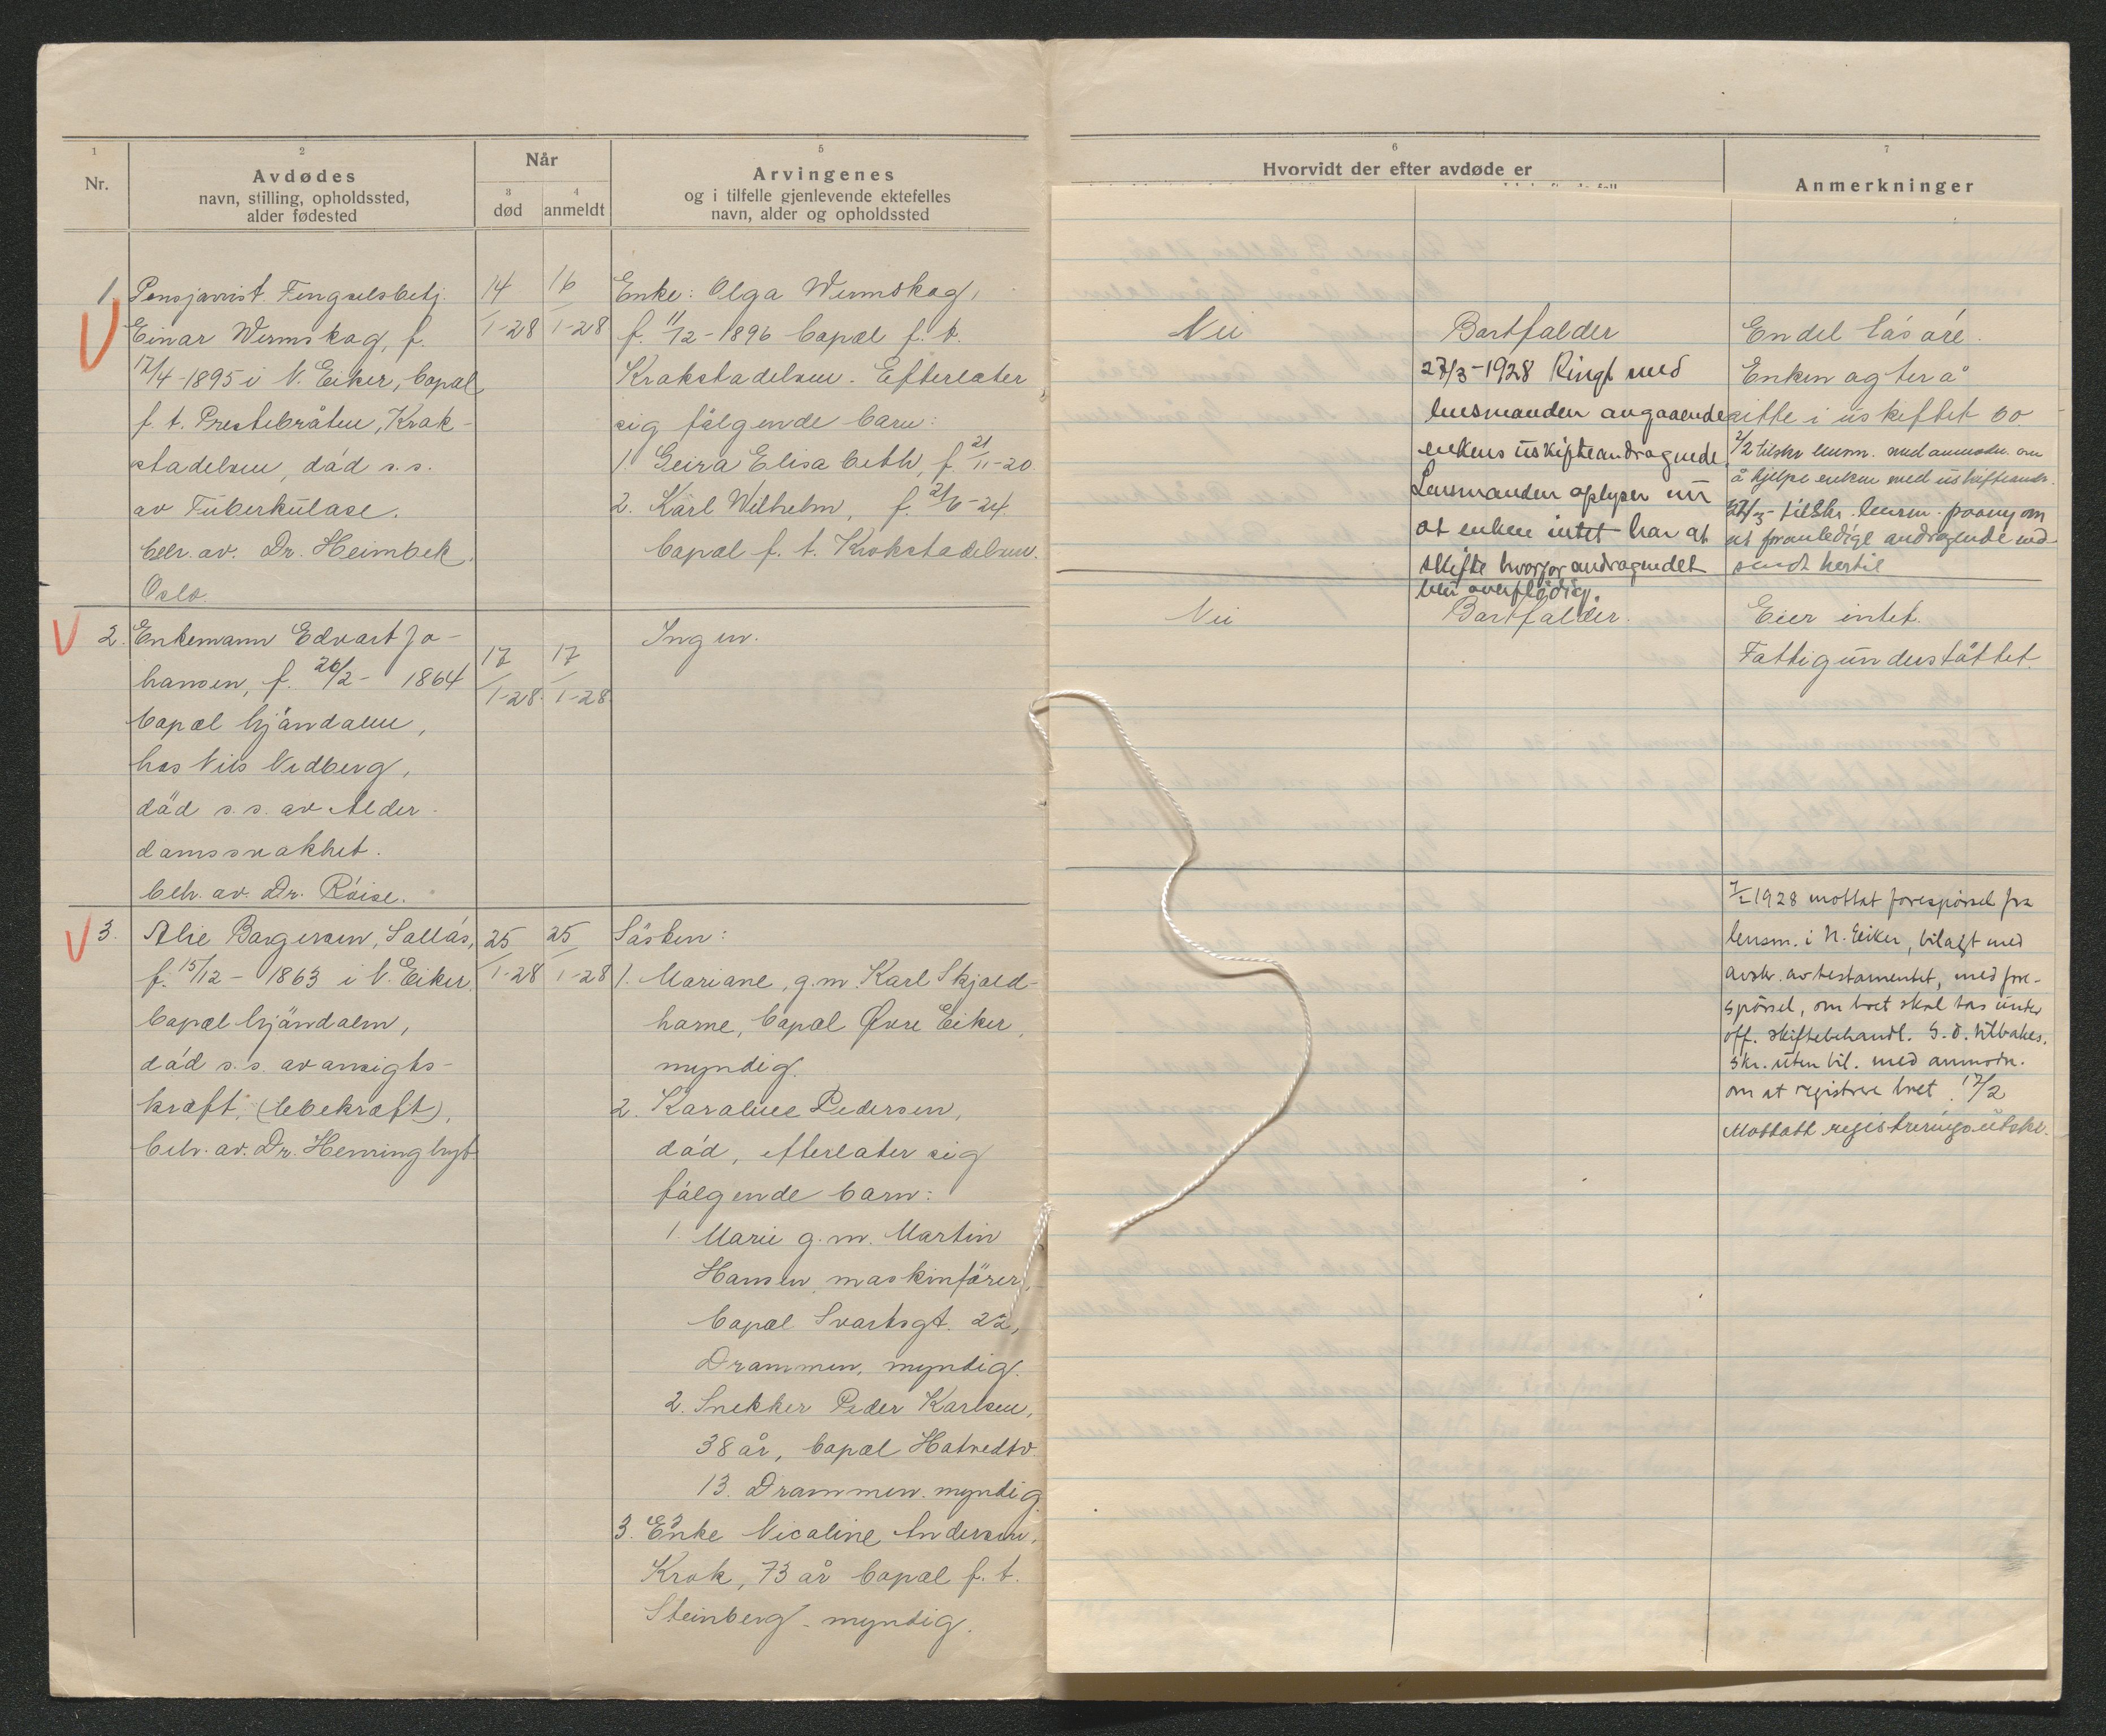 1
Nr.
2
Avdødes
navn, stilling, opholdssted,
alder fødested
Når
3
død
4
anmeldt
5
Arvingenes
og i tilfelle gjenlevende ektefelles
navn, alder og opholdssted
6
Hvorvidt der efter avdøde er
7
Anmerkninger
1
Pensjonist. Fengselsbetj.
Einar Wermskog, f.
17/4-1895 i N. Eiker, bopæl
f. t. Prestebråten, Krok-
stadelven, död s.s.
av Tuberkulose.
beh. av. Dr. Heimbek,
Oslo.
14
/1-28
16
/1-28
Enke: Olga Wermskog,
f. 11/12-1896 bopæl f. t.
Krokstadelven. Efterlater
sig fölgende barn:
1. Geira Elisabeth, f. 21/11-20.
2. Karl Wilhelm, f. 21/6-24.
bopæl f. t. Krokstadelven.
Nei
Bortfalder
27/3-1928 Ringt med
lensmanden angaaende
enkens uskifteandragende.
Lensmanden oplyser nu
at enken intet har at
skifte hvorfor andragendet
blir overflödig.
Endel lösöre.
Enken agter å
sitte i uskiftet bo
2/2 tilskr. lensm. med anmodn. om
å hjelpe enken med uskifteandr.
27/3- tilskr. lensm. paany om
at foranledige andragende ind-
sendt hertil
2.
Enkemann Edvart Jo-
hansen, f. 26/2- 1864
bopæl Mjöndalen,
hos Nils Vedberg,
död s.s. av Alder-
domssvakhet.
beh. av. Dr. Röise.
17
/1-28.
17
/1-28
Ingen.
Nei
Bortfalder.
Eier intet.
Fattigunderstöttet.
3.
Alse Borgersen, Sollös,
f. 15/12- 1863 i N. Eiker.
bopæl Mjöndalen,
död s.s. av ansigts-
kræft, (lebekræft),
beh. av. Dr. Henning
25
/1-28
25
/1-28
Sösken:
1. Mariane, g.m. Karl Skjold-
hame, bopæl Øvre Eiker,
myndig.
2. Karoline Pedersen,
död, efterlater sig
fölgende barn:
1. Marie g.m. Martin
Hansen, maskinförer,
bopæl Svartsgt. 22,
Drammen, myndig.
2. Snekker Peder Karlsen,
38 år, bopæl Hotvedtv.
13. Drammen. myndig.
3. Enke Nicoline Andersen,
Krok, 73 år bopæl f. t.
Steinberg - myndig.
7/2 1928 mottat forespörsel fra
lensm. i N. Eiker, bilagt med
avskr. av testamentet, med fore-
spörsel, om boet skal tas under
off. skiftebehandl. S. d. tilbakes.
skr. uten bil. med anmodn.
om at registrere boet. 17/2
Mottatt registreringsutskr.